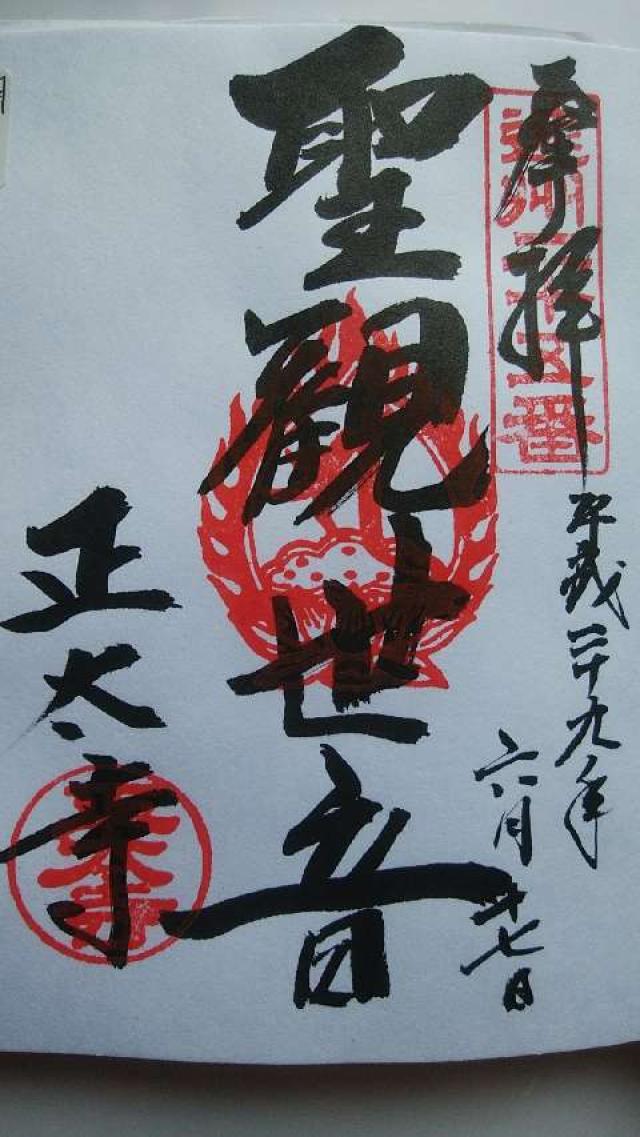 奉拝
平成二十九年
六月
十七日
聖観世音
正太寺